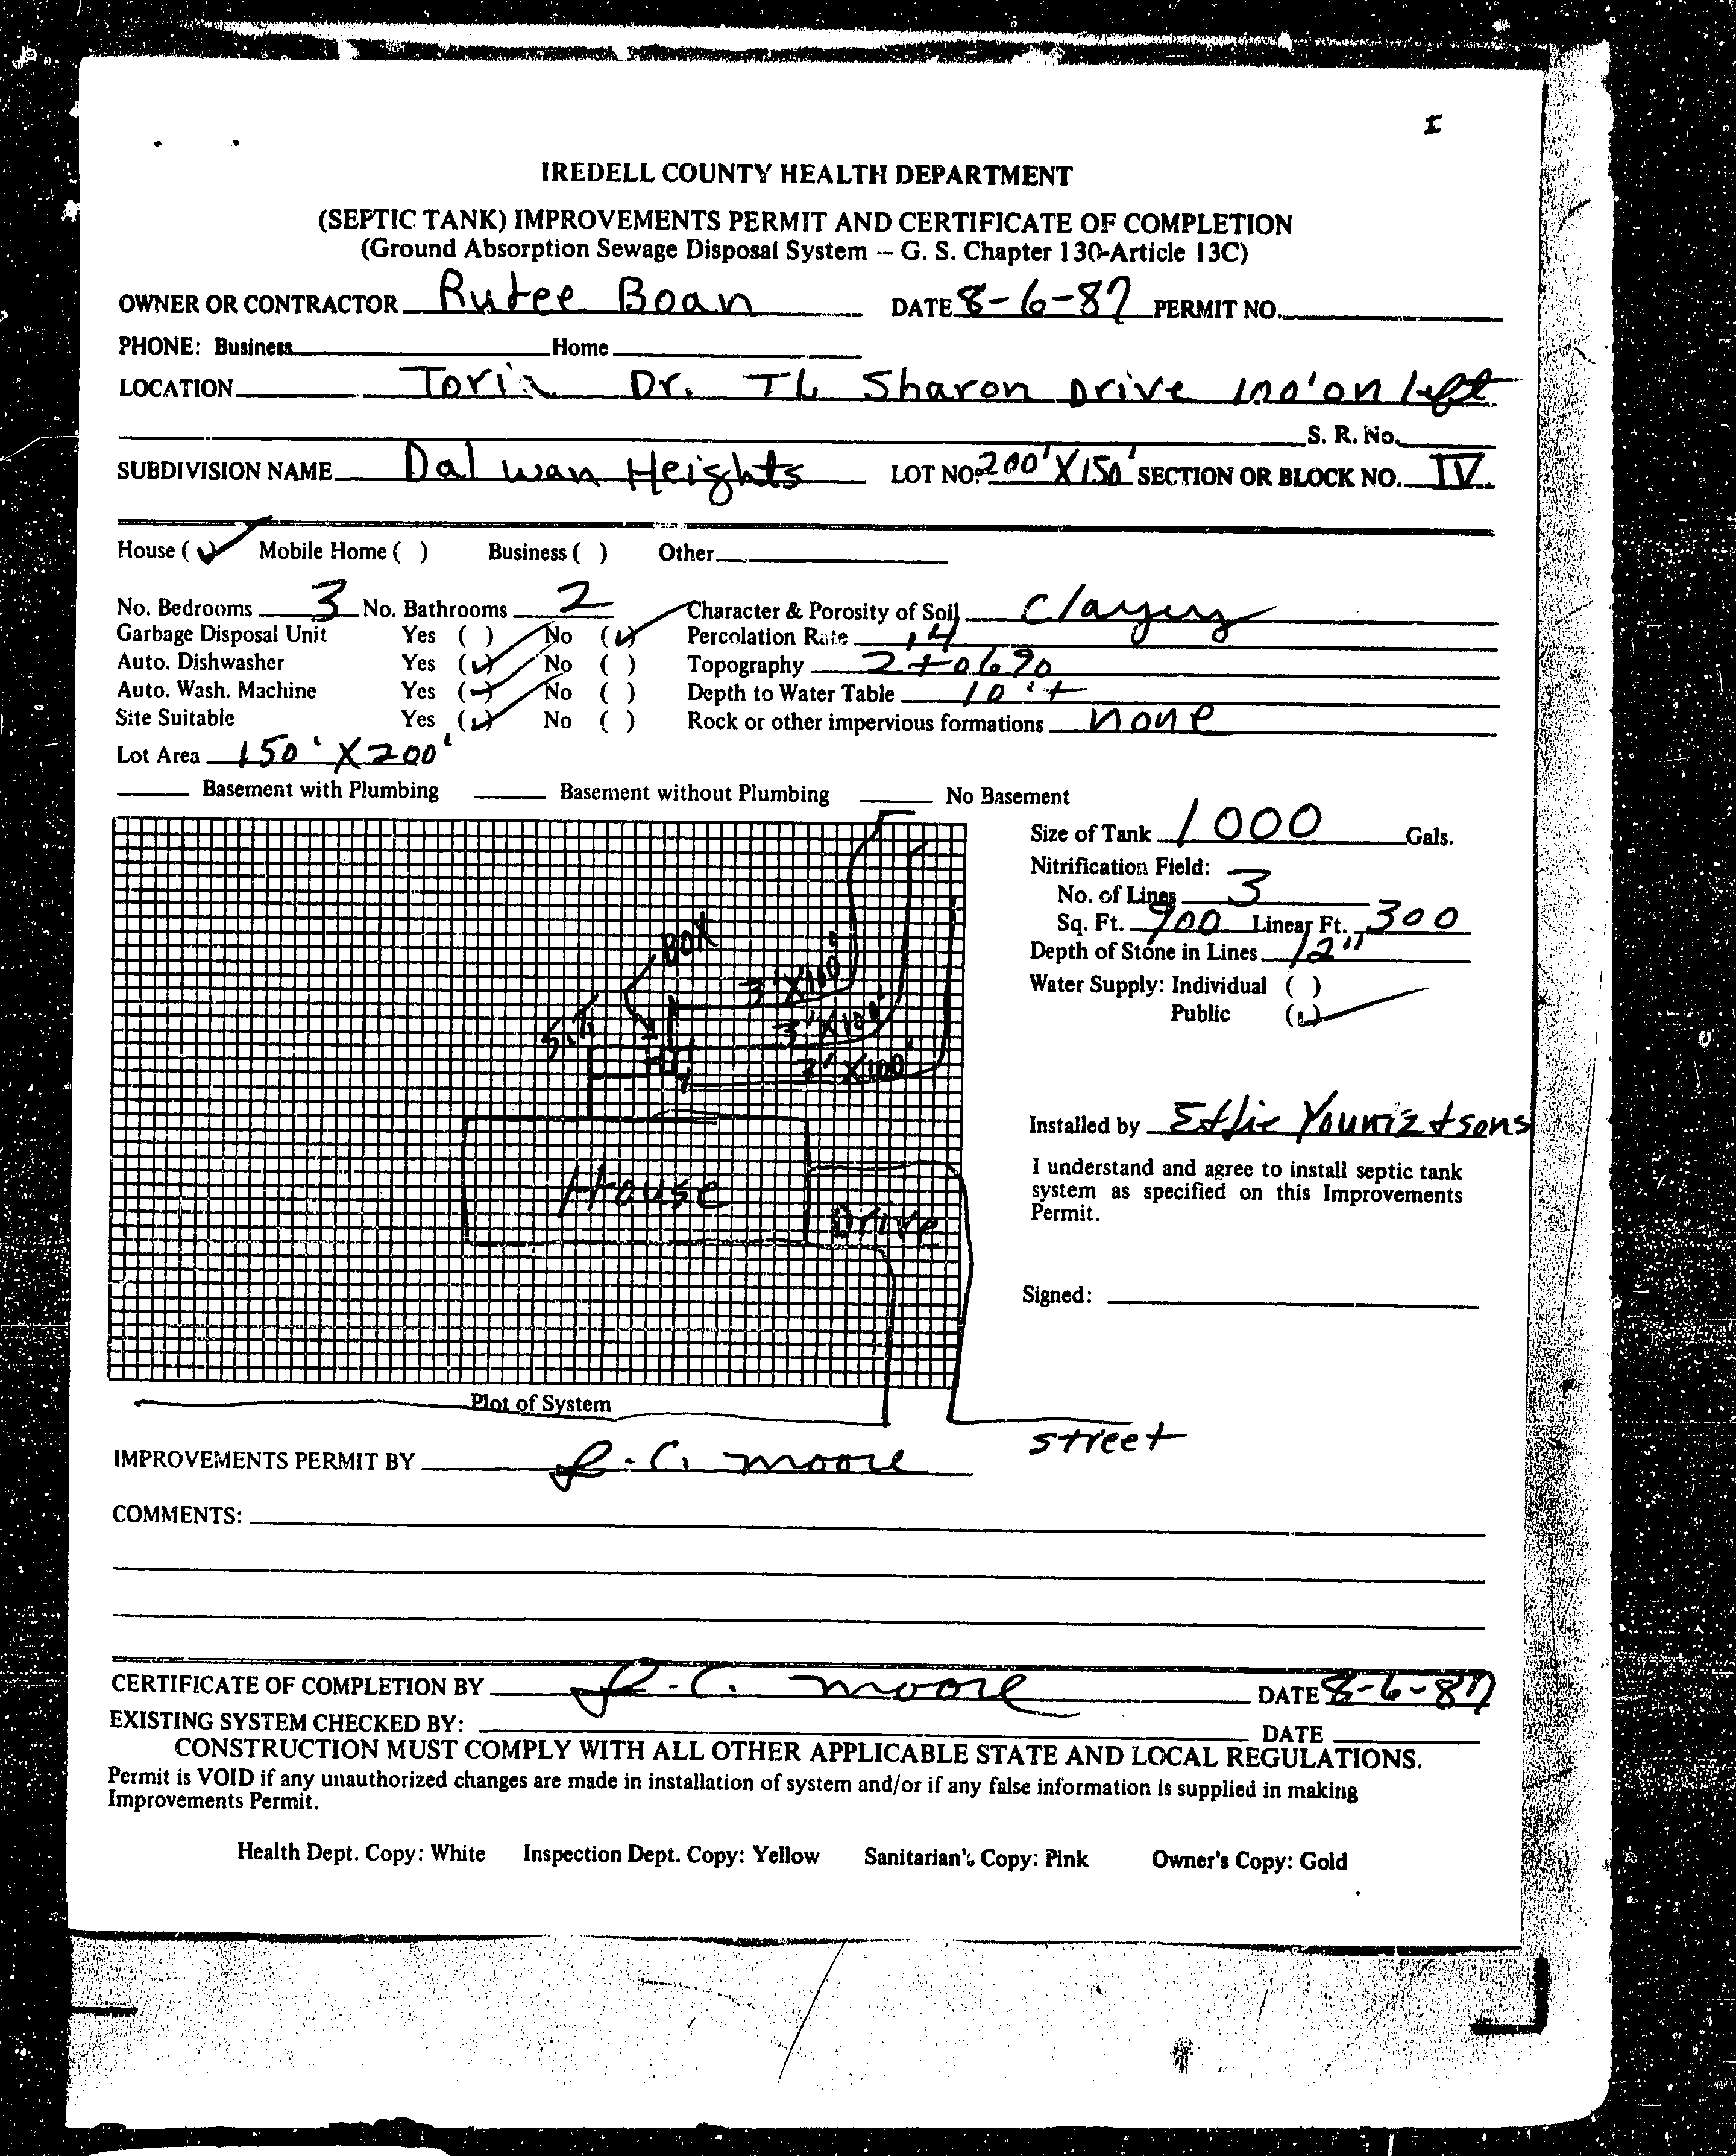 I
IREDELL COUNTY HEALTH DEPARTMENT
(SEPTIC TANK) IMPROVEMENTS PERMIT AND CERTIFICATE OF COMPLETION
(Ground Absorption Sewage Disposal System -- G. S. Chapter 130-Article 13C)
OWNER OR CONTRACTOR Rutee Boan DATE 8-6-87 PERMIT NO.
PHONE: Business Home
LOCATION Toria Dr. TL Sharon Drive 100' on left
S. R. No.
SUBDIVISION NAME Dalwan Heights LOT NO. 200' X 150' SECTION OR BLOCK NO. IV
House (✓) Mobile Home ( ) Business ( ) Other
No. Bedrooms 3 No. Bathrooms 2 Character & Porosity of Soil clayey
Garbage Disposal Unit Yes ( ) No (✓) Percolation Rate .4
Auto. Dishwasher Yes (✓) No ( ) Topography 2 to 6 %
Auto. Wash. Machine Yes (✓) No ( ) Depth to Water Table 10'+
Site Suitable Yes (✓) No ( ) Rock or other impervious formations none
Lot Area 150' X 200'
Basement with Plumbing Basement without Plumbing No Basement
Size of Tank 1000 Gals.
Nitrification Field:
No. of Lines 3
Sq. Ft. 900 Linear Ft. 300
Depth of Stone in Lines 12"
Water Supply: Individual ( )
Public (✓)
BOX
S.T.
3' X 100'
3' X 100'
3' X 100'
House
Drive
Installed by
I understand and agree to install septic tank
system as specified on this Improvements
Permit.
Signed:
Plot of System
street
IMPROVEMENTS PERMIT BY R.C. Moore
COMMENTS:
CERTIFICATE OF COMPLETION BY R.C. Moore DATE 8-6-87
EXISTING SYSTEM CHECKED BY: DATE
CONSTRUCTION MUST COMPLY WITH ALL OTHER APPLICABLE STATE AND LOCAL REGULATIONS.
Permit is VOID if any unauthorized changes are made in installation of system and/or if any false information is supplied in making
Improvements Permit.
Health Dept. Copy: White Inspection Dept. Copy: Yellow Sanitarian's Copy: Pink Owner's Copy: Gold